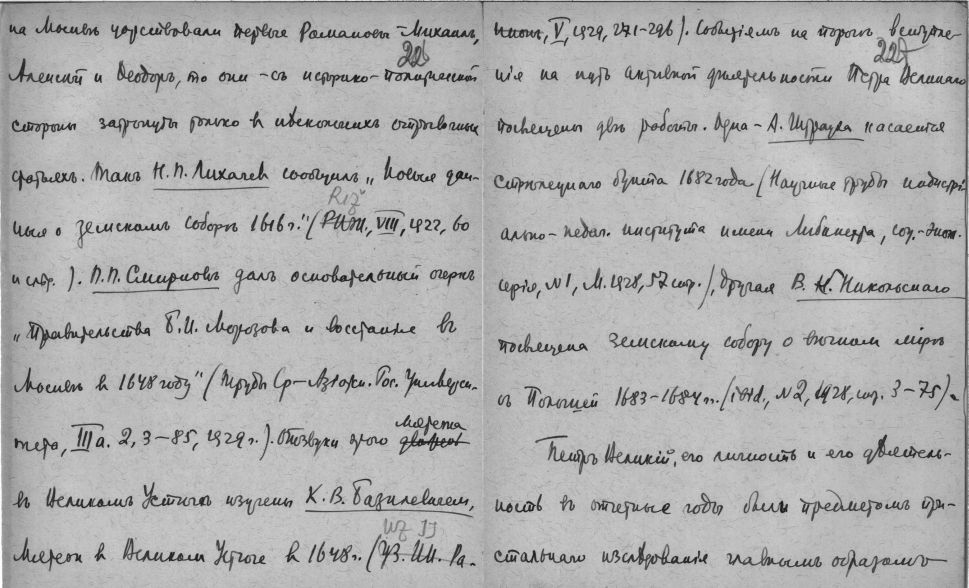 на Москвѣ царствовали первые Романовы – Михаилъ,
226
Алексѣй и Ѳеодоръ, то они – съ историко-политической
стороны затронуты только въ нѣсколькихъ отрывочныхъ
статьяхъ. Такъ Н. П. Лихачев сообщилъ „Новыя дан-
ныя о земскомъ соборѣ 1616 г." (РИЖ., VIII, 1922, 60
и слѣд.). П. П. Смирновъ далъ основательный очеркъ
„Правительства Б. И. Морозова и восстание въ
Москвѣ в 1648 году" (Труды Ср.-Азіатск. Гос. Универси-
тета, III а. 2, 3–85, 1929 г.). Отзвуки этого мятежа
въ Великомъ Устюгѣ изучены К. В. Базилевичем,
Мятеж в Великом Устюге в 1648 г. (Уз. Ин. Ра-
V, 1929, 271–296). Событіямъ на порогѣ вступле-
227
нія на путь активной дѣятельности Петра Великаго
посвещены двѣ работы. Одна – А. Штрауха касается
Стрѣлецкаго бунта 1682 года (Научные труды индустрі-
ально-педаг. института имени Либкнехта, соц.-экон.
серія, №1, М. 1928, 57 стр.), другая В. К. Никольскаго
посвещена Земскому собору о вѣчном мірѣ
съ Польшей 1683–1684 гг. (ibid., №2, 1928, стр. 3–75).
Петръ Великій, его личность и его дѣятель-
ность въ отчетные годы были предметомъ при-
стальнаго изслѣдованія главнымъ образомъ